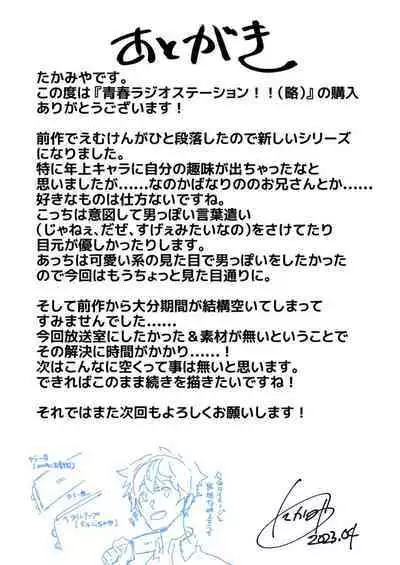 あとがき
たかみやです。
この度は『青春ラジオステーション！！(略)』の購入
ありがとうございます！
前作でえむけんがひと段落したので新しいシリーズ
になりました。
特に年上キャラに自分の趣味が出ちゃったなと
思いましたが……なのかばなりののお兄さんとか……
好きなものは仕方ないですね。
こっちは意図して男っぽい言葉遣い
(じゃねぇ、だぜ、すげぇみたいなの)をさけてたり
目元が優しかったりします。
あっちは可愛い系の見た目で男っぽいをしたかった
ので今回はもうちょっと見た目通りに。
そして前作から大分期間が結構空いてしまって
すみませんでした……
今回放送室にしたかった＆素材が無いということで
その解決に時間がかかり……！
次はこんなに空くって事は無いと思います。
できればこのまま続きを描きたいですね！
それではまた次回もよろしくお願いします！
たかみや
2023.04